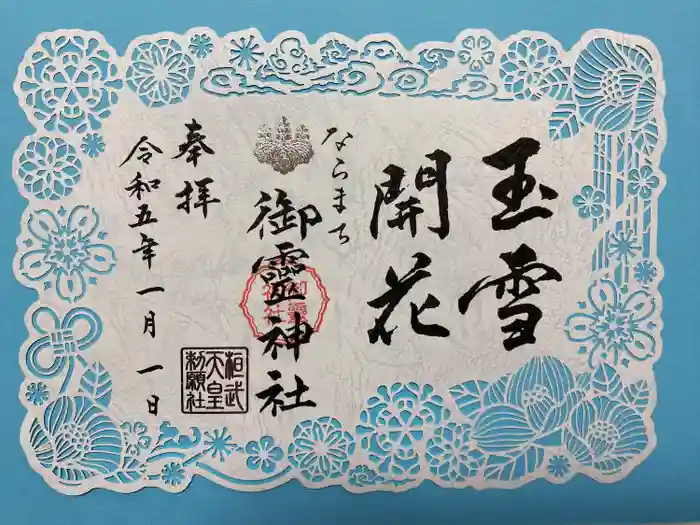 玉雪
開花
ならまち
御靈神社
御靈神社
桓武
天皇
勅願社
奉拝
令和五年一月一日